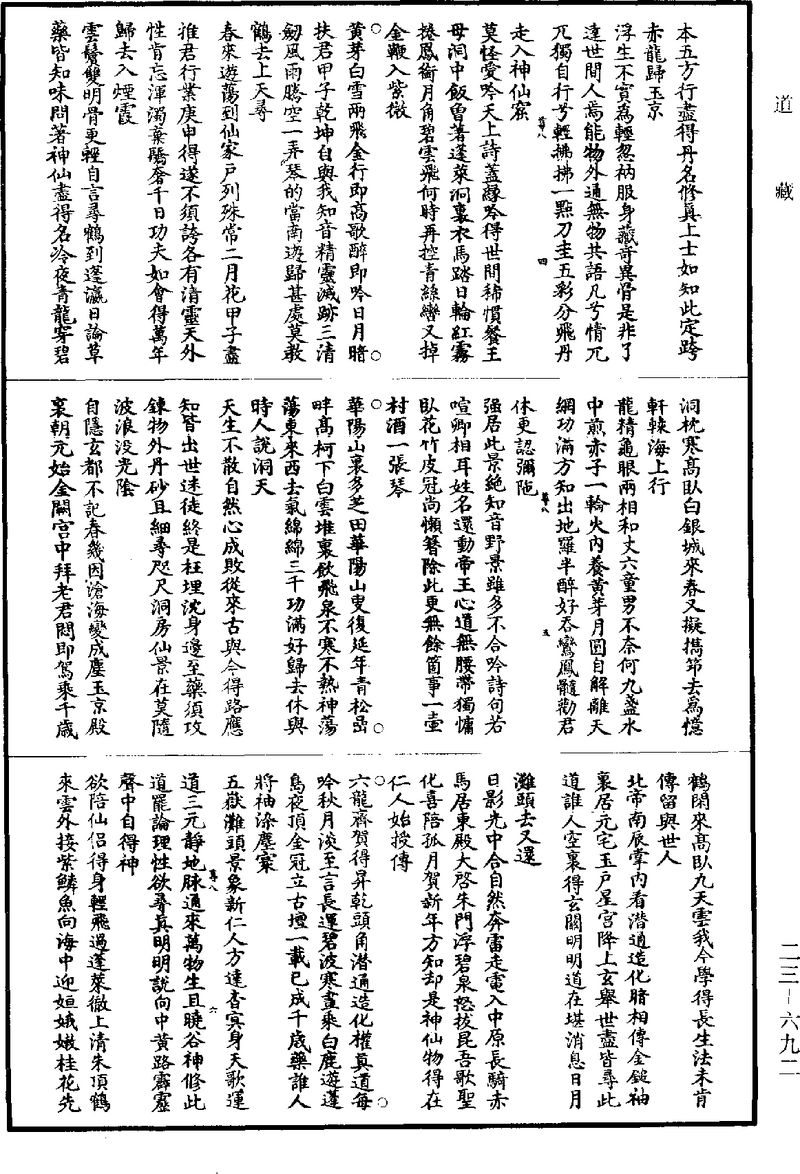 道藏
本五方行盡得丹名修真上士如知此定跨
赤龍歸玉京
浮生不實為輕忽衲服身藏奇異骨是非了
達世間人焉能物外通無物共語凡兮情兀
兀獨自行兮輕拂拂一點刀圭五彩分飛丹
走入神仙窟
尊八
四
莫怪愛吟天上詩蓋緣吟得世間稀慣餐王
母洞中飯曾著蓬萊洞裏衣馬踏日輪紅霧
捲鳳銜月角碧雲飛何時再控青絲轡又掉
金鞭入紫微
黃芽白雪兩飛金行即高歌醉即吟日月暗
扶君甲子乾坤自與我知音精靈滅跡三清
劒風雨騰空一弄琴的當南遊歸甚處莫教
鶴去上天尋
春來遊蕩到仙家戶列殊常二月花甲子盡
推君行業庚申得遂不須誇各有清靈天外
性肯忘渾濁棄驕奢千日功夫如會得萬年
歸去入煙霞
雲鬢雙明骨更輕自言尋鶴到蓬瀛日論草
藥皆知味問著神仙盡得名冷夜青龍穿碧
洞枕寒高臥白銀城來春又擬攜笻去為憶
軒轅海上行
龍精龜眼兩相和丈六童男不奈何九盞水
中煎赤子一輪火內養黃芽月圓自解離天
網功滿方知出地羅半醉好吞鸞鳳髓勸君
休更認彌陁
尊八
五
强居此景絕知音野景雖多不合吟詩句若
喧卿相耳姓名還動帝王心道無腰帶獨慵
臥花竹皮冠尚懶簪除此更無餘箇事一壺
村酒一張琴
華陽山裏多芝田華陽山叟復延年青松嵒
畔高柯下白雲堆裏飲飛泉不寒不熱神蕩
蕩東來西去氣綿綿三千功滿好歸去休與
時人說洞天
天生不散自然心成敗從來古與今得路應
知皆出世迷徒終是枉埋沈身邊至藥須攻
鍊物外丹砂且細尋咫尺洞房仙景在莫隨
波浪没光陰
自隱玄都不記春幾因滄海變成塵玉京殿
裏朝元始金闕宮中拜老君悶即駕乘千歲
鶴閑來高臥九天雲我今學得長生法未肯
傳留與世人
北帝南辰掌內看潛通造化暗相傳金鎚袖
裏居元宅玉戶星宮降上玄舉世盡皆尋此
道誰人空裏得玄關明明道在堪消息日月
灘頭去又還
日影光中合自然奔雷走電入中原長騎赤
馬居東殿大啓朱門浮碧泉怒拔昆吾歌聖
化喜陪孤月賀新年方知却是神仙物得在
仁人始授傳
六龍齊賀得昇乾頭角潛通造化權真道每
吟秋月淡至言長運碧波寒晝乘白鹿遊蓬
島夜頂金冠立古壇一載已成千歲藥誰人
將袖染塵寰
五嶽灘頭景象新仁人方達杳冥身天歌運
尊八
六
道三元靜地脉通來萬物生且曉谷神修此
道罷論理性欲尋真明明說向中黃路霹靂
聲中自得神
欲陪仙侶得身輕飛過蓬萊徹上清朱頂鶴
來雲外接紫鱗魚向海中迎姮娥嫩桂花先
二三-六九二